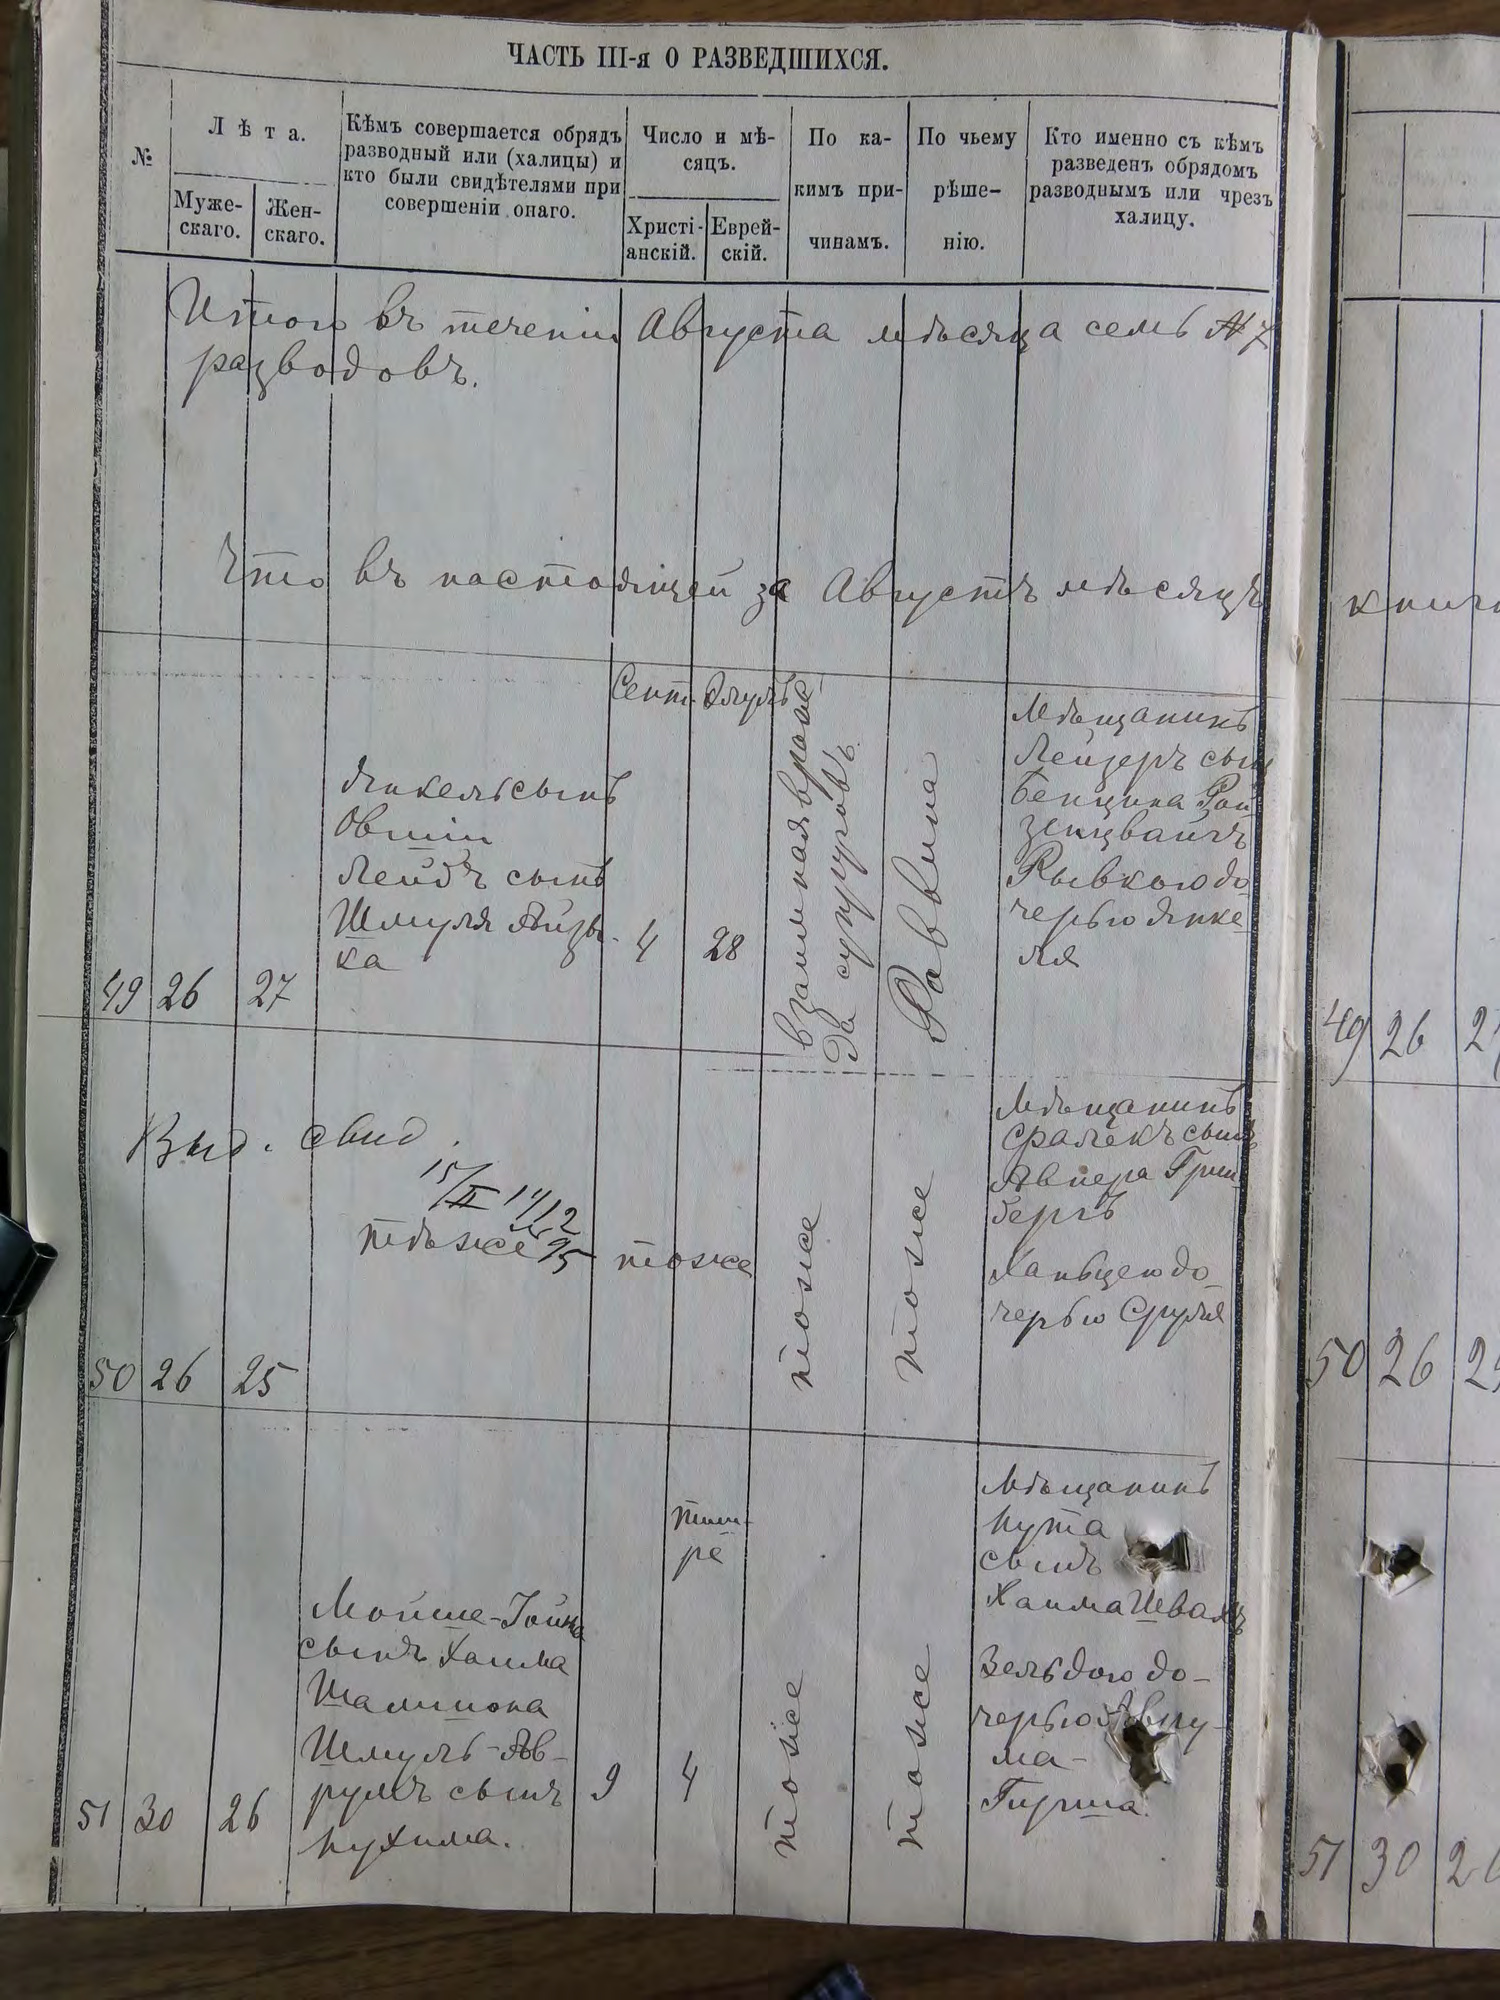 ЧАСТЬ III-я О РАЗВЕДШИХСЯ.
№
Лѣта.
Муже-
скаго.
Жен-
скаго.
Кѣмъ совершается обрядъ
разводный или (халицы) и
кто были свидѣтелями при
совершеніи онаго.
Число и мѣ-
сяцъ.
Христі-
анскій.
Еврей-
скій.
По ка-
кимъ при-
чинамъ.
По чьему
рѣше-
нію.
Кто именно съ кѣмъ
разведенъ обрядомъ
разводнымъ или чрезъ
халицу.
Итого въ теченіи Августа мѣсяца семь № 7
разводовъ.
Что въ настоящей за Августъ мѣсяцъ
49
26
27
Янкель сынъ
Овшіи
Лейбъ сынъ
Шмуля Айзы-
ка
Сент.
4
Элулъ
28
взаимная вражс
да супруговъ
Раввина
Мѣщанинъ
Лейзеръ сынъ
Бенціина Рой
зенцвайгъ
Рывкою до
черью Янке
ля
50
26
25
Выд. свид.
15/II 1912
тѣже
95
тоже
тоже
тоже
Мѣщанинъ
Сролекъ сынъ
Авнера Грин-
бергъ
Ханьцею до
черью Сруля
51
30
26
Мойше-Іойна
сынъ Хаима
Шамшона
Шмуль-Ав-
румъ сынъ
Нухима.
9
тиш-
ре
4
тоже
тоже
Мѣщанинъ
Нута
сынъ
Хаима Шварцъ
Зельдою до-
черью Авру-
ма-
Гирша.
49 26
50 26
51 30